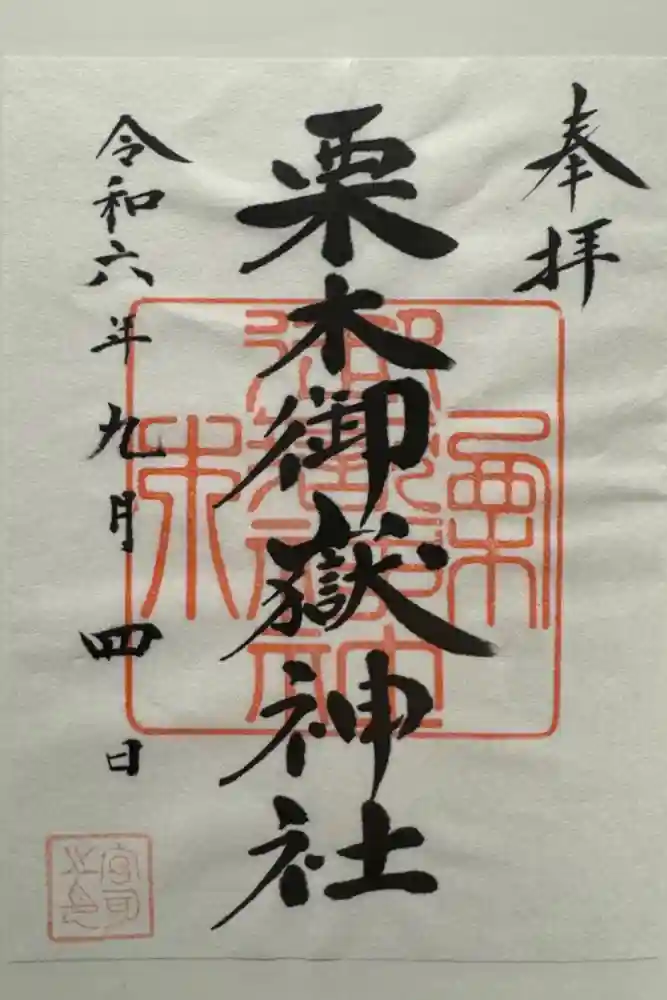 奉拝
栗木御嶽神社
令和六年九月四日
栗木
御嶽神社
宮司之印